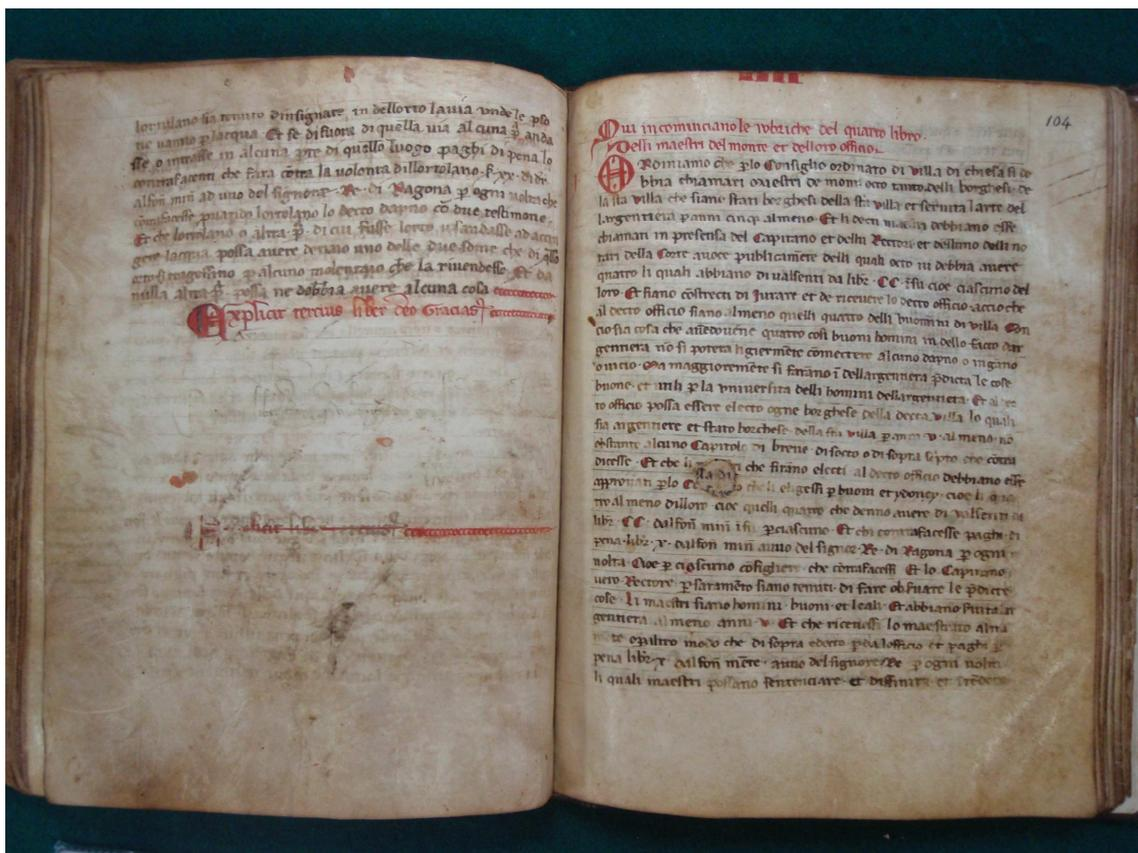 lortulano sia tenuto dinsignare in dellorto la via unde le pso
ne vanno p lacqua. Et se di fuora di quella via alcuna p̄. anda
sse o intrasse in alcuna pte di quello luogo paghi di pena lo
contrafacenti che fara cōtra la volonta dillortolano. s. xx. di dr.
alfon min̄ ad uno del signore. Re. di Ragona p̄ ogni volta che
contrafacesse pvando lortolano lo decto dapno cō due testimone.
Et che lortolano o altra. p̄. di cui fusse lorto u sandasse ad actin
gere lacqua possa avere denaio uno delle due some che di q̄sto
orto si traggessino p alcuno molentajo che la rivendesse. Et da
nulla altra p̄. possa ne dobbia avere alcuna cosa
Explicit tercius liber deo Gracias
Explicit liber tercius
IIII
104
Qui incominciano le rubriche del quarto libro.
Delli maestri del monte et delloro officio.
ORdiniamo che p lo Consiglio ordinato di Villa di chiesa si de
bbia chiamari maestri de monti octo tanto. delli borghesi. de
la dicta villa che siano stati borghesi della dicta villa et servita larte del
largentiera p anni cinq al meno. Et li decti maestri debbiano esse
chiamati in presensa del Capitano et delli Rectori et dellimo delli no
tari della Corte a voce publicamente delli quali octo ni debbia avere
quatro li quali abbiano di valsenti da libr. CC. in su cioe ciascuno del
loro. Et siano constrecti di Jurare et de ricevere lo decto officio. accio che
al decto officio siano al meno quelli quatro delli buomini di villa. Con
cio sia cosa che avēdovene quatro cosi buoni homini in dello facto dar
gentiera nō si potera ligiermēte cōmectere alcuno dapno o ingano
o inicio. Ma maggioremēte si farano ī dellargentiera p̄dicta le cose
buone. et utili p la universita delli homini dellargentiera. Et al dec
to officio possa essere electo ogne borghese della decta villa lo quali
sia argentiere et stato borchese. della dicta villa p anni. v. al meno. nō
obstante alcuno Capitolo di breve. di socto o di sopra scpto che cōtra
dicesse. Et che li che sirano electi al decto officio debbiano esser
approvati p lo che li eligessi p buoni et ydoney. cioe li qua
tro al meno dilloro. cioe quelli quatro che denno avere di valsenti da
libr. CC. dalfon min̄ in su p ciascuno. Et chi contrafacesse paghi di
pena. libr. x. dalfon min̄ anno del signor. Re. di Ragona p ogni
volta. Cioe p ciascuno cōsigliere che cōtrafacessi. Et lo Capitano
vero Rectore p saramēto siano tenuti. di fare observare le p̄dicte
cose. Li maestri siano homini. buoni. et leali. Et abbiano servita ar
gentiera al meno anni. v. Et che ricevessi lo maestrato altra
mēte o p altro modo che di sopra edecto pda lofficio et paghi p
pena libr. x. dalfon mēte. anno del signore Re p ogni volta
li quali maestri possano sentenciare. et diffinire et